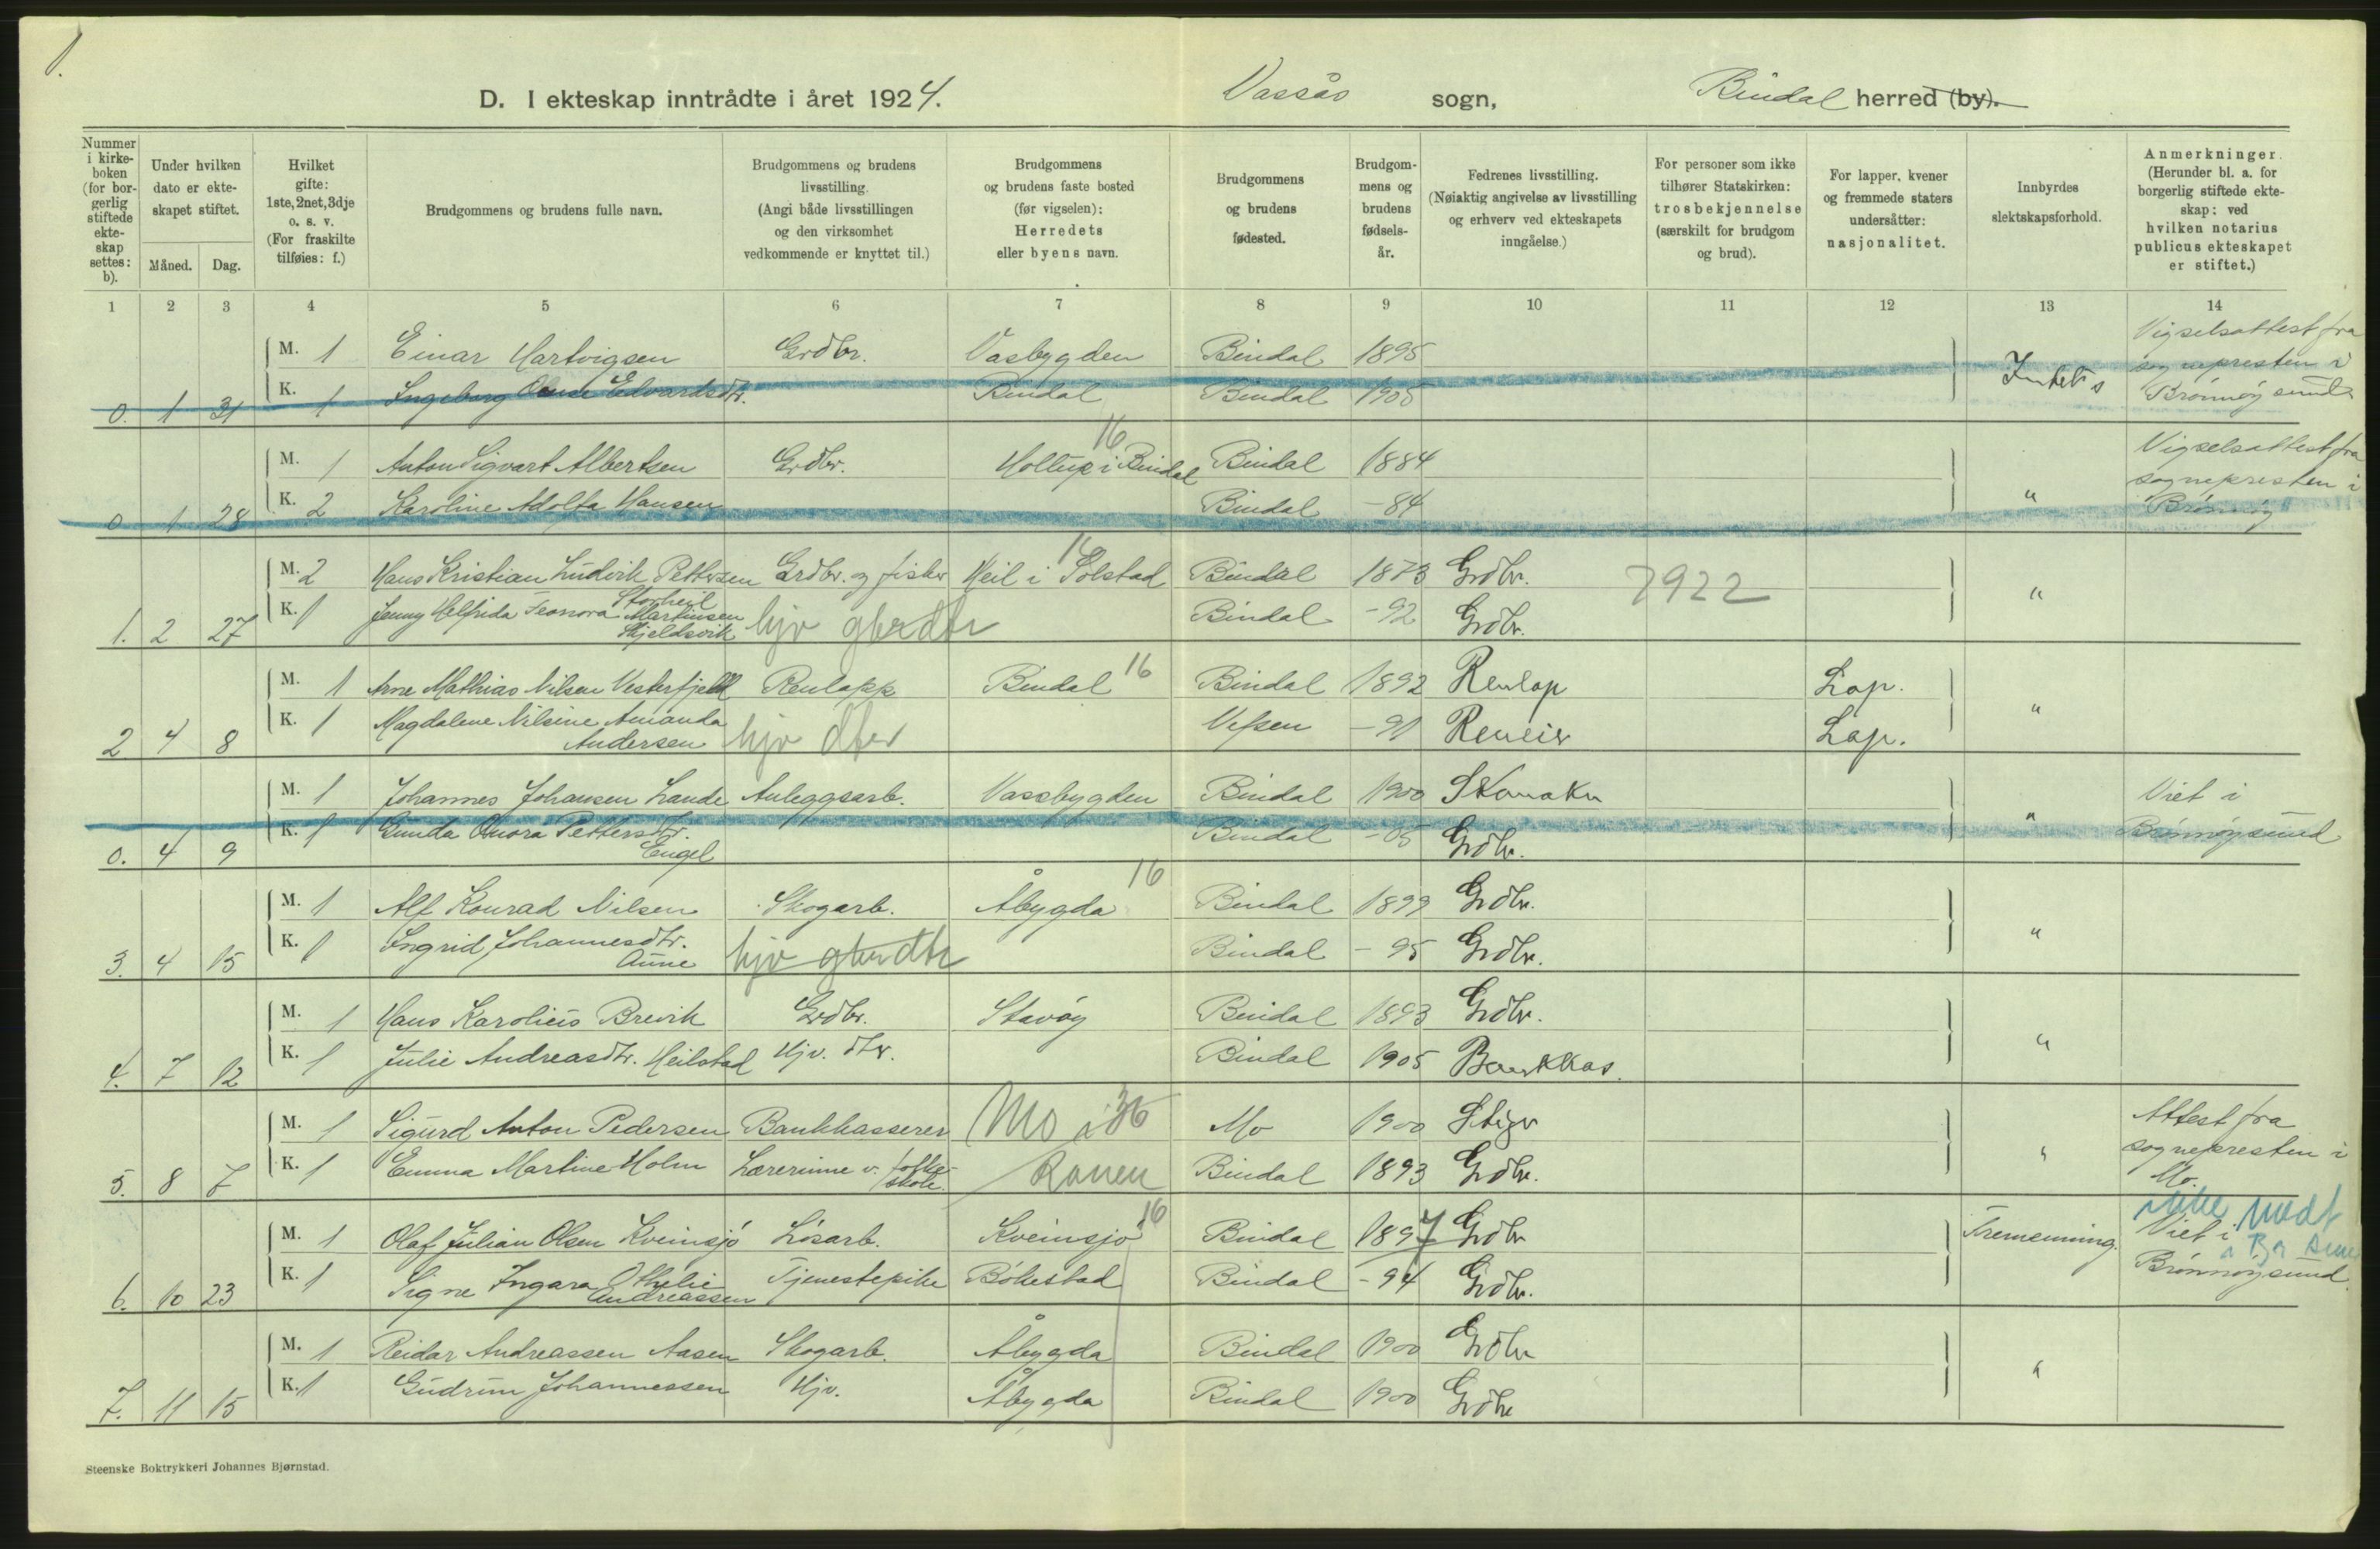 1.
D. I ekteskap inntrådte i året 1924. Vassås sogn, Bindal herred (by).
Nummer i kirkeboken (for borgerlig stiftede ekteskap settes: b).
Under hvilken dato er ekteskapet stiftet.
Måned. Dag.
Hvilket gifte: 1ste, 2net, 3dje o. s. v. (For fraskilte tilføies: f.)
Brudgommens og brudens fulle navn.
Brudgommens og brudens livsstilling. (Angi både livsstillingen og den virksomhet vedkommende er knyttet til.)
Brudgommens og brudens faste bosted (før vigselen): Herredets eller byens navn.
Brudgommens og brudens fødested.
Brudgommens og brudens fødselsår.
Fedrenes livsstilling. (Nøiaktig angivelse av livsstilling og erhverv ved ekteskapets inngåelse.)
For personer som ikke tilhører Statskirken: trosbekjennelse (særskilt for brudgom og brud).
For lapper, kvener og fremmede staters undersåtter: nasjonalitet.
Innbyrdes slektskapsforhold.
Anmerkninger. (Herunder bl. a. for borgerlig stiftede ekteskap: ved hvilken notarius publicus ekteskapet er stiftet.)
1 2 3 4 5 6 7 8 9 10 11 12 13 14
M. 1 Einar Hartvigsen Grdbr. Vasbygden Bindal 1895 Vigselsattest fra
sognepresten i
0. 1 31 K. 1 Ingeborg Edvardsdtr. Bindal Bindal 1905 Brønnøysund
16
M. 1 Anton Sigvart Albertsen Grdbr. Holtup i Bindal Bindal 1884 Vigselsattest fra
sognepresten i
0 1 28 K. 2 Karoline Adolfa Hansen Bindal -84 " Brønnøy
16
M. 2 Hans Kristian Ludvik Pettersen Grdbr. og fisker Heil i Solstad Bindal 1873 Grdbr. 7922
Storheil
1. 2 27 K. 1 Jenny Helfrida Leonora Martinsen hjv gbrdtr Bindal -92 Grdbr. "
Skjeldsvik
M. 1 Arne Mathias Nilsen Vesterfjell Renlapp Bindal 16 Bindal 1892 Renlap Lap.
2 4 8 K. 1 Magdalene Nilsine Amanda hjv dter Vefsen -91 Reneier Lap. "
Andersen
M. 1 Johannes Johansen Lande Anleggsarb. Vassbygden Bindal 1900 Skomaker Viet i
0. 4 9 K. 1 Gunda Pettersdtr. Bindal -05 Grdbr. " Brønnøysund
Engel
16
M. 1 Alf Konrad Nilsen Skogarb. Åbygda Bindal 1899 Grdbr.
3. 4 15 K. 1 Ingrid Johannesdtr. hjv gbrdtr Bindal -95 Grdbr. "
Aune
M. 1 Hans Karolius Brevik Grdbr. Stavøy Bindal 1893 Grdbr.
4. 7 12 K. 1 Julie Andreasdtr. Heilstad Hjv. dtr. Bindal 1905 Bankkas. "
M. 1 Sigurd Anton Pedersen Bankkasserer Mo i 36 Mo 1900 Stiger Attest fra
sognepresten i
5. 8 7 K. 1 Emma Martine Holm Lærerinne v. folkeskole. Ranen Bindal 1893 Grdbr. " Mo.
ikke nødt
16
M. 1 Olaf Julian Olsen Kveinsjø Løsarb. Kveinsjø Bindal 1897 Grdbr Tremenning. Viet i
6. 10 23 K. 1 Signe Ingara Othelie Tjenestepike Bøkestad Bindal -94 Grdbr. Brønnøysund.
Andreassen
M. 1 Reidar Andreassen Aasen Skogarb. Åbygda Bindal 1900 Grdbr
7. 11 15 K. 1 Gudrun Johannessen Hjv. Åbygda Bindal 1900 Grdbr "
Steenske Boktrykkeri Johannes Bjørnstad.